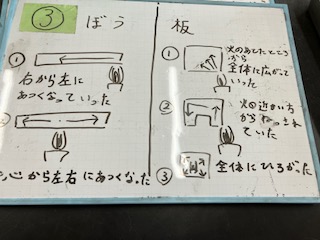 ③ ぼう
①
右から左に
あつくなっていった
②
中心から左右にあつくなった
板
①
火のあてたところ
から
全体に広がって
いった
②
火の近い方
からねっされ
ていた
③
全体にひろがった